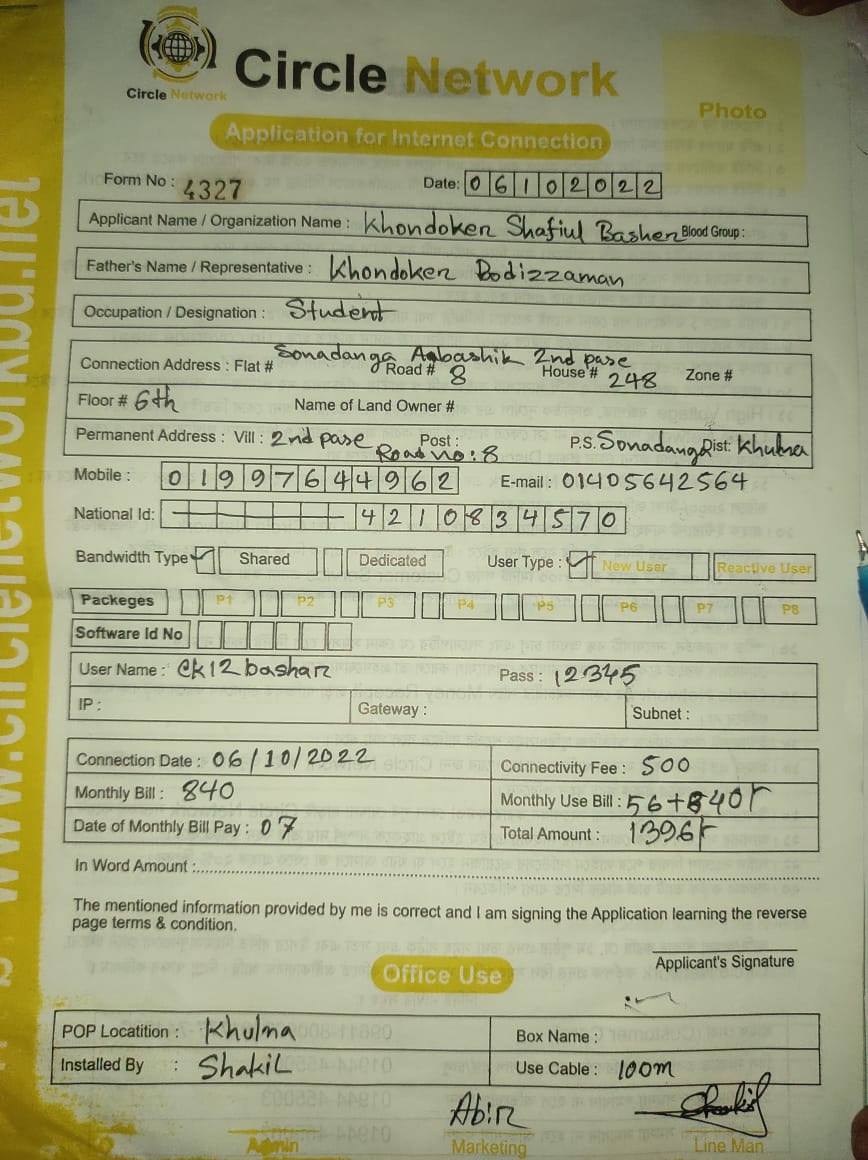 Circle Network
Circle Network
Photo
Application for Internet Connection
Form No : 4327 Date: 06102022
Applicant Name / Organization Name : Khondoker Shafiul Basher Blood Group :
Father's Name / Representative : Khondoker Bodizzaman
Occupation / Designation : Student
Sonadanga Aabashik 2nd pase
Connection Address : Flat # Road # 8 House # 248 Zone #
Floor # 6th Name of Land Owner #
Permanent Address : Vill : 2nd pase Post : P.S. Sonadanga Dist: Khulna
Road no : 8
Mobile : 01997644962 E-mail : 01405642564
National Id: 4210834570
Bandwidth Type Shared Dedicated User Type : New User Reactive User
Packeges P1 P2 P3 P4 P5 P6 P7 P8
Software Id No
User Name : ck12bashar Pass : 12345
IP : Gateway : Subnet :
Connection Date : 06/10/2022 Connectivity Fee : 500
Monthly Bill : 840 Monthly Use Bill : 56+840/-
Date of Monthly Bill Pay : 07 Total Amount : 1396/-
In Word Amount :
The mentioned information provided by me is correct and I am signing the Application learning the reverse
page terms & condition.
Applicant's Signature
Office Use
POP Locatition : Khulna Box Name :
Installed By : Shakil Use Cable : 100m
Abir
Admin Marketing Line Man
www.circlenetworkbd.net